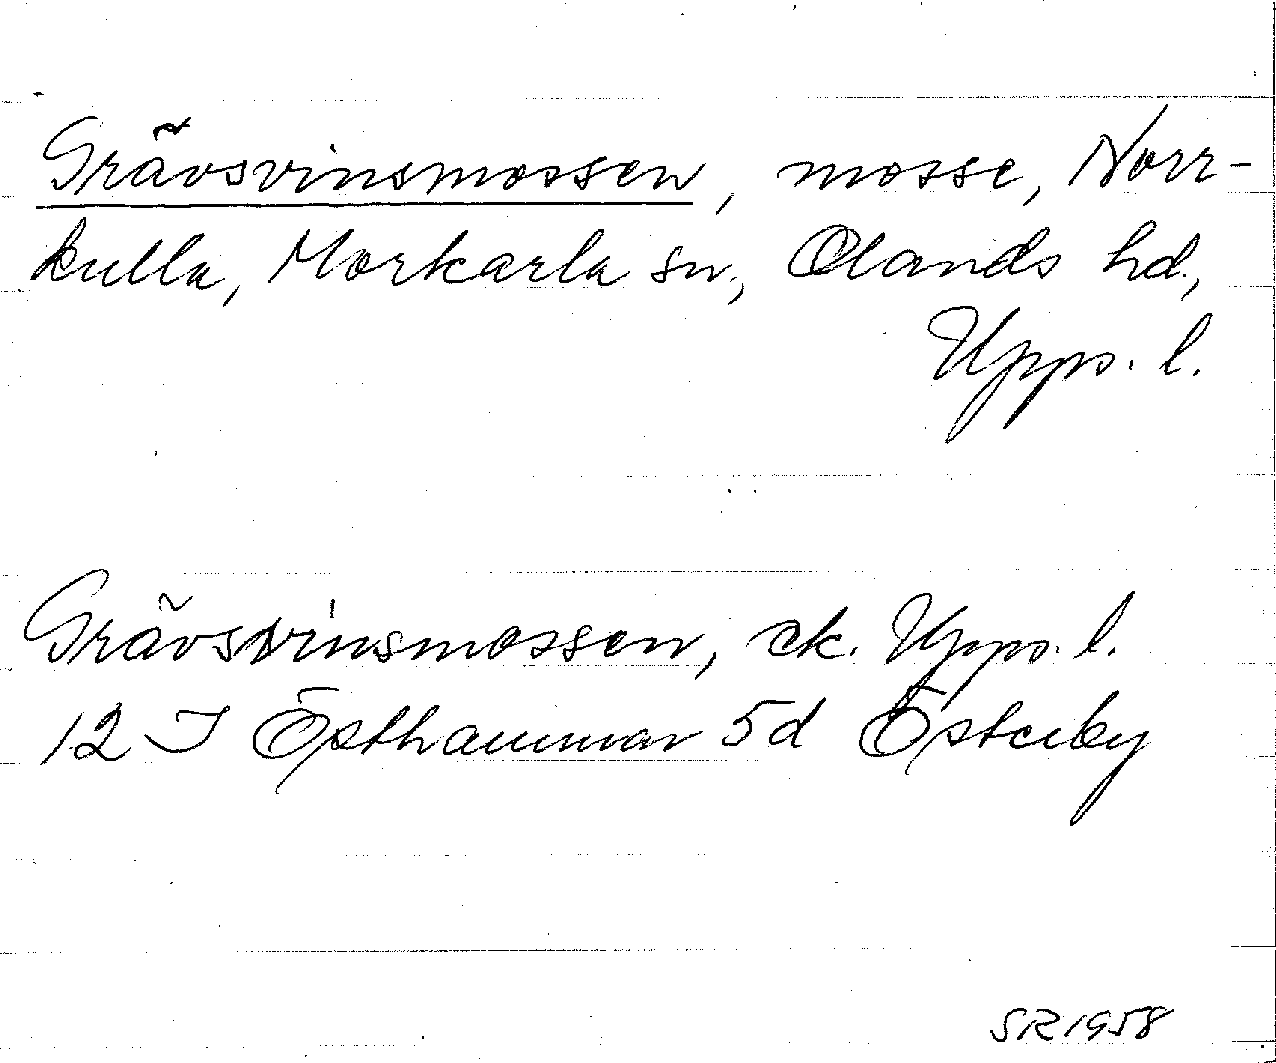 Grävsvinsmossen, mosse, Norr-
kulla, Morkarla sn, Olands hd.,
Upps. l.
Grävsvinsmossen, ek. Upps. l.
12 I Östhammar 5d Österby
SR 1958